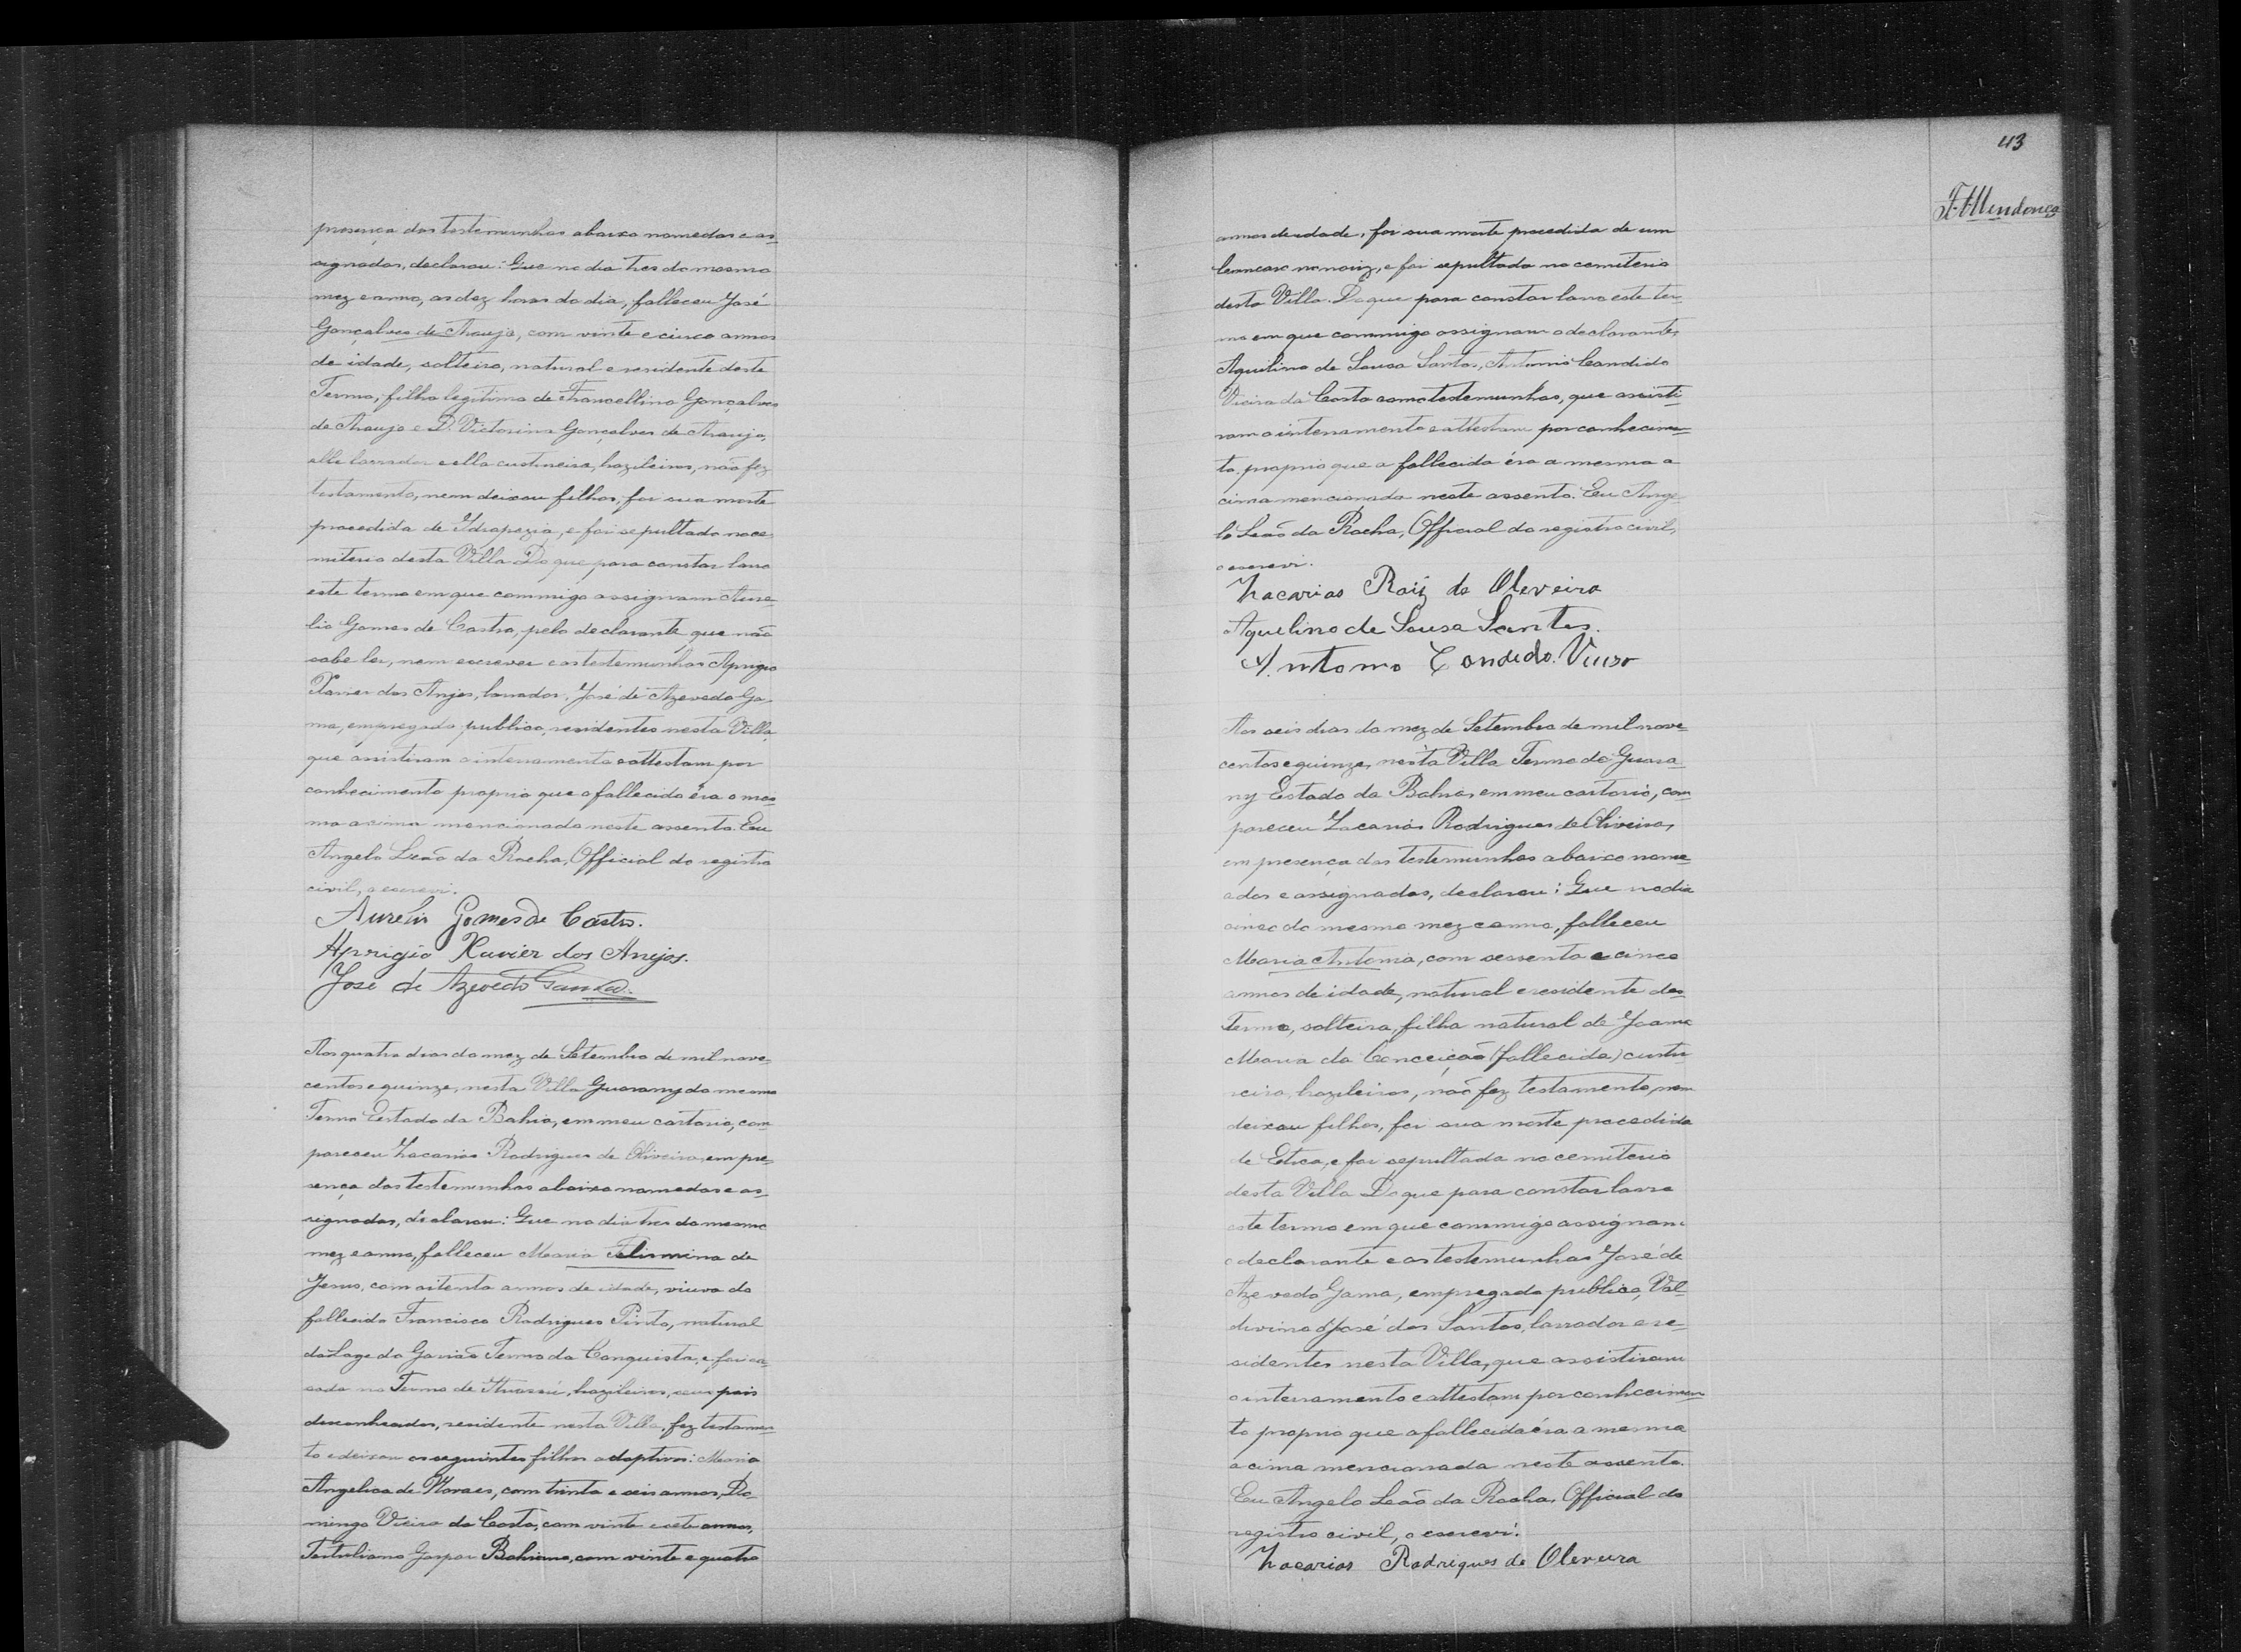 presença das testemunhas abaixo nomedas e as-
signadas, declarou: Que no dia tres do mesmo
mez e anno, as dez horas do dia, falleceu José
Gonçalves de Araujo, com vinte e cinco annos
de idade, solteiro, natural e residente deste
Termo, filho legitimo de Francellino Gonçalves
de Araujo e D. Victorina Gonçalves de Araujo,
elle lavrador e ella custureira, brazileiros, não fez
testamento, nem deixou filhos, foi sua morte
procedida de Idropezia, e foi sepultado no ce-
miterio desta Villa Do que para constar lavro
este termo em que commigo assignam Aure-
lio Gomes de Castro, pelo declarante, que não
sabe ler, nem escrever e as testemunhas Aprigio
Xavier dos Anjos, lavrador, José de Azevedo Ga-
ma, empregado publico, residentes nesta Villa,
que assistiram o interramento e attestam por
conhecimento proprio que o fallecido éra o mes-
mo acima mencionado neste assento. Eu
Angelo Leão da Rocha, Official do registro
civil, o escrevi.
Aurelio Gomes de Castro.
Aprigio Xavier dos Anejos.
José de Azevedo Gama.
Aos quatro dias do mez de Setembro de mil nove-
centos e quinze, nesta Villa Guarany do mesmo
Termo Estado da Bahia, em meu cartorio, com-
pareceu Zacarias Rodrigues de Oliveira, em pre-
sença das testemunhas abaixo nomedas e as-
signadas, declarou: Que no dia tres do mesmo
mez e anno, falleceu Maria Felirmina de
Jesus, com oitenta annos de idade, viuva do
fallecido Francisco Rodrigues Pinto, natural
da Lage do Gavião Termo da Conquista, e foi ca-
sada no Termo de Ituassú, brazileiros, seus pais
desconhecidos, residente nesta Villa, fez testamen-
to e deixou os seguintes filhos adoptivos: Maria
Angelica de Moraes, com trinta e seis annos, Do-
mingo Vieira da Costa, com vinte e sete annos,
Tertuliano Gaspar Bahiano, com vinte e quatro
43
F. A. Mendonça
annos de idade, foi sua morte procedida de um
cancaro no nariz, e foi sepultada no cemiterio
desta Villa. Do que para constar lavro este ter-
mo em que commigo assignam o declarante,
Aquilino de Sousa Santos, Antonio Candido
Vieira da Costa como testemunhas, que assisti-
ram o interramento e attestam por conhecimen-
to proprio que a fallecida éra a mesma a-
cima mencionada neste assento. Eu Ange-
lo Leão da Rocha, Official do registro civil,
o escrevi.
Zacarias Roiz de Oleveira
Aquelino de Sousa Santos.
Antonio Candido Vieira
Aos seis dias do mez de Setembro de mil nove-
centos e quinze, nesta Villa Termo de Guara-
ny Estado da Bahia, em meu cartorio, com-
pareceu Zacarias Rodrigues de Oliveira,
em presença das testemunhas abaixo nome-
adas e assignadas, declarou: Que no dia
cinco do mesmo mez e anno, falleceu
Maria Antonia, com sessenta e cinco
annos de idade, natural e residente des-
Termo, solteira, filha natural de Joana
Maria da Conceição (fallecida) custu-
reira, brazileiros, não fez testamento, nem
deixou filhos, foi sua morte procedida
de Etica, e foi sepultada no cemiterio
desta Villa Do que para constar lavro
este termo em que commigo assignam
o declarante e as testemunhas José de
Azevedo Gama, empregado publico, Val-
divino José dos Santos, lavrador e re-
sidentes nesta Villa, que assistiram
o interramento e attestam por conhecimen-
to proprio que a fallecida éra a mesma
acima mencionada neste assento.
Eu Angelo Leão da Rocha, Official do
registro civil, o escrevi.
Zacarias Rodrigues de Oleveira